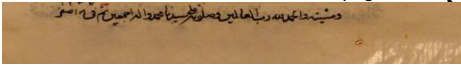 ومشيته والحمد لله رب العالمين وصلى الله على سيدنا محمد واله اجمعين